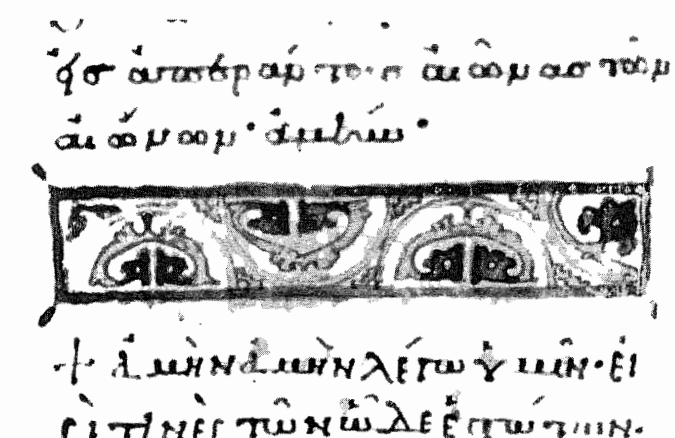 εἰς ἀπεράντους αἰῶνας τῶν
αἰώνων· ἀμήν·
+ ἀμὴν ἀμὴν λέγω ὑμῖν· εἰ
σί τινὲς τῶν ὧδε ἑστώτων·